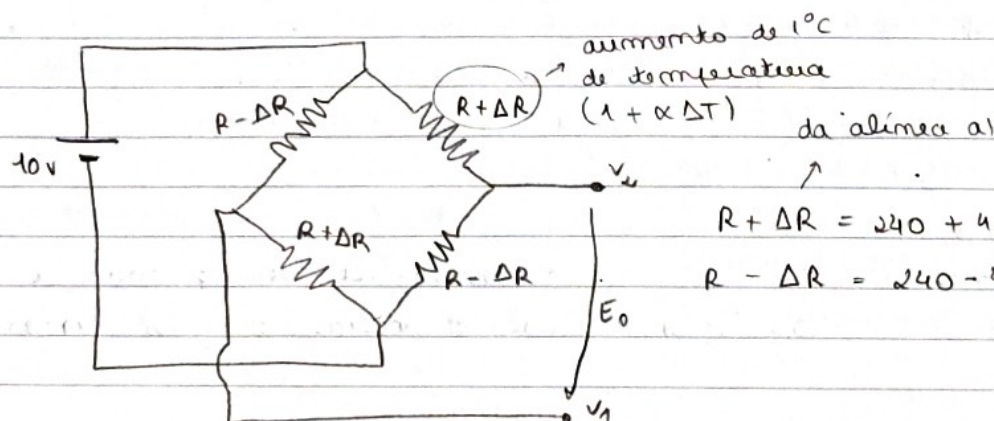 aumento de 1°C
de temperatura
(1 + α ΔT)
da alínea a)
R - ΔR
R + ΔR
10 v
R + ΔR = 240 + 4
R - ΔR = 240 -
R + ΔR
R - ΔR
E₀
v₁